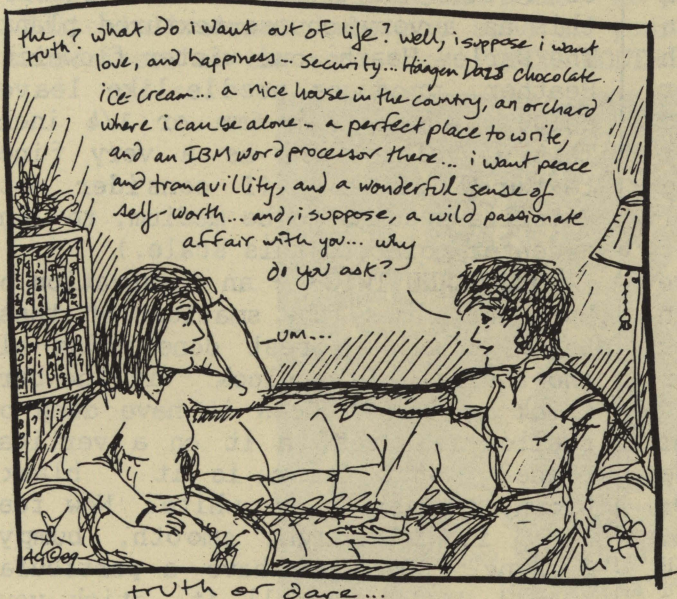 the truth? what do i want out of life? well, i suppose i want
love, and happiness... security... Häagen Dazs chocolate
ice cream... a nice house in the country, an orchard
where i can be alone - a perfect place to write,
and an IBM word processor there... i want peace
and tranquillity, and a wonderful sense of
self-worth... and, i suppose, a wild passionate
affair with you... why
do you ask?
um...
AG©89
truth or dare...